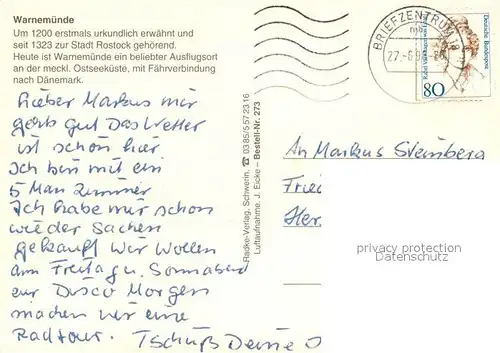 Warnemünde
Um 1200 erstmals urkundlich erwähnt und
seit 1323 zur Stadt Rostock gehörend.
Heute ist Warnemünde ein beliebter Ausflugsort
an der meckl. Ostseeküste, mit Fährverbindung
nach Dänemark.
Lieber Markus mir
gehts gut Das Wetter
ist schön hier
Ich bin mit ein
5 Man Zimmer
Ich habe mir schon
wieder Sachen
gekauft Wir Wollen
am Freitag u. Sonnabend
zur Disco Morgen
machen wir eine
Radtour. Tschüß Deine
Radke-Verlag, Schwerin, ☎ 03 85/5 57 23 16
Luftaufnahme: J. Eicke – Bestell-Nr. 273
BRIEFZENTRUM 18
27.-6.9
Deutsche Bundespost
80
An Markus Stemberg
privacy protection
Datenschutz